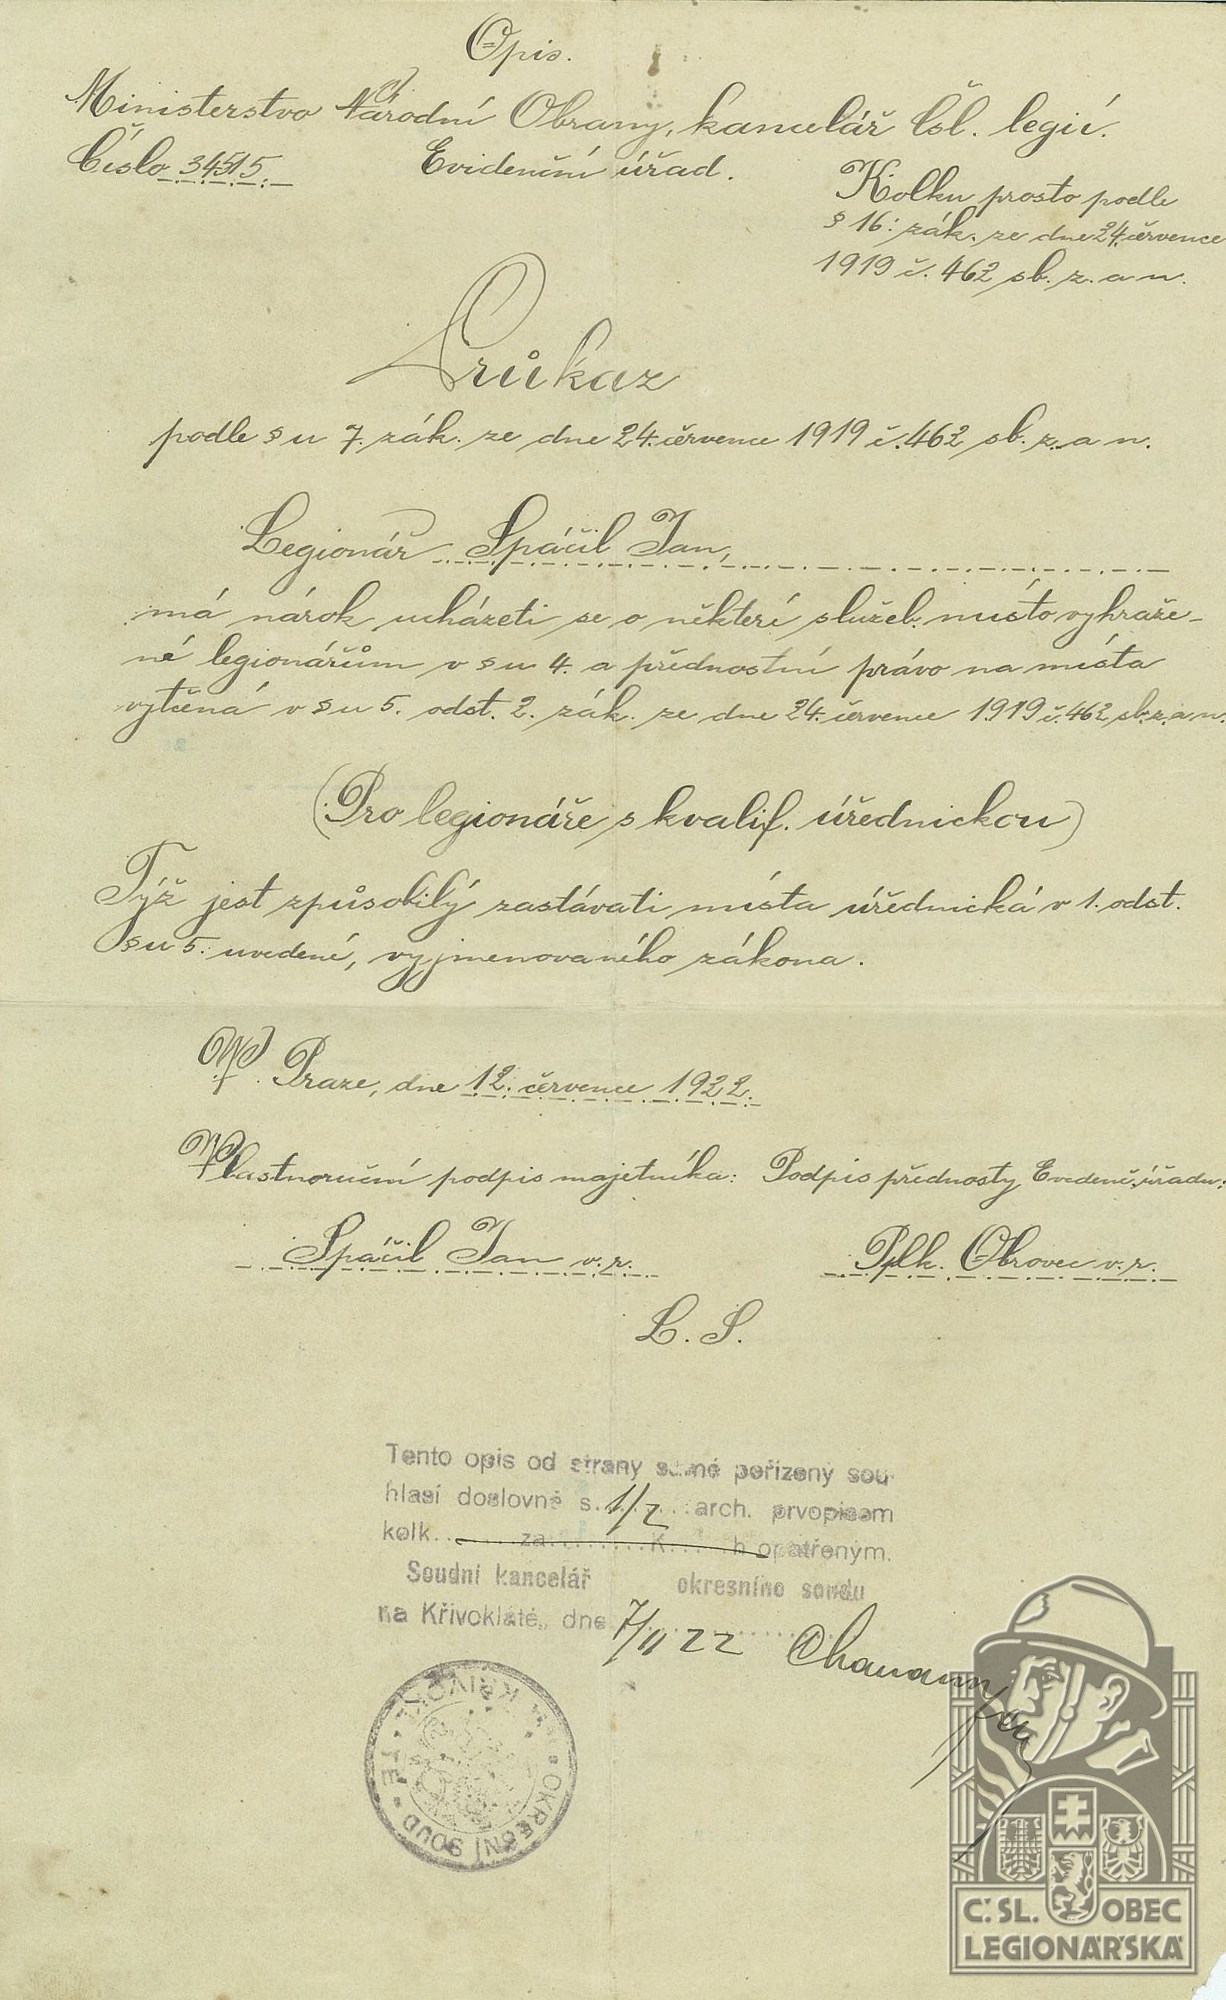 Opis.
Ministerstvo Národní Obrany, kancelář čsl. legií.
Číslo 34515.
Evidenční úřad.
Kolku prosto podle
§ 16: zák. ze dne 24. července
1919 č. 462 sb. z. a n.
Průkaz
podle § u 7. zák. ze dne 24. července 1919 č. 462 sb. z. a n.
Legionář Spáčil Jan,
má nárok ucházeti se o některé služeb. místo vyhraže-
né legionářům v § u 4. a přednostní právo na místa
vytčená v § u 5. odst. 2. zák. ze dne 24. července 1919 č. 462 sb. z. a n.
(Pro legionáře s kvalif. úřednickou)
Týž jest způsobilý zastávati místa úřednická v 1. odst.
§ u 5. uvedené, vyjmenovaného zákona.
V Praze, dne 12. července 1922.
Vlastnoruční podpis majetníka: Podpis přednosty Evidenč. úřadu:
Spáčil Jan v. r.
Pplk. Obrovec v. r.
L. S.
Tento opis od strany samé pořízený sou
hlasí doslovně s 1/2 arch. prvopisem
kolk. za K h opatřeným.
Soudní kancelář okresního soudu
na Křivoklátě, dne 7/11 22
OKRESNÍ SOUD NA KŘIVOKLÁTĚ
Č.SL. OBEC
LEGIONÁŘSKÁ